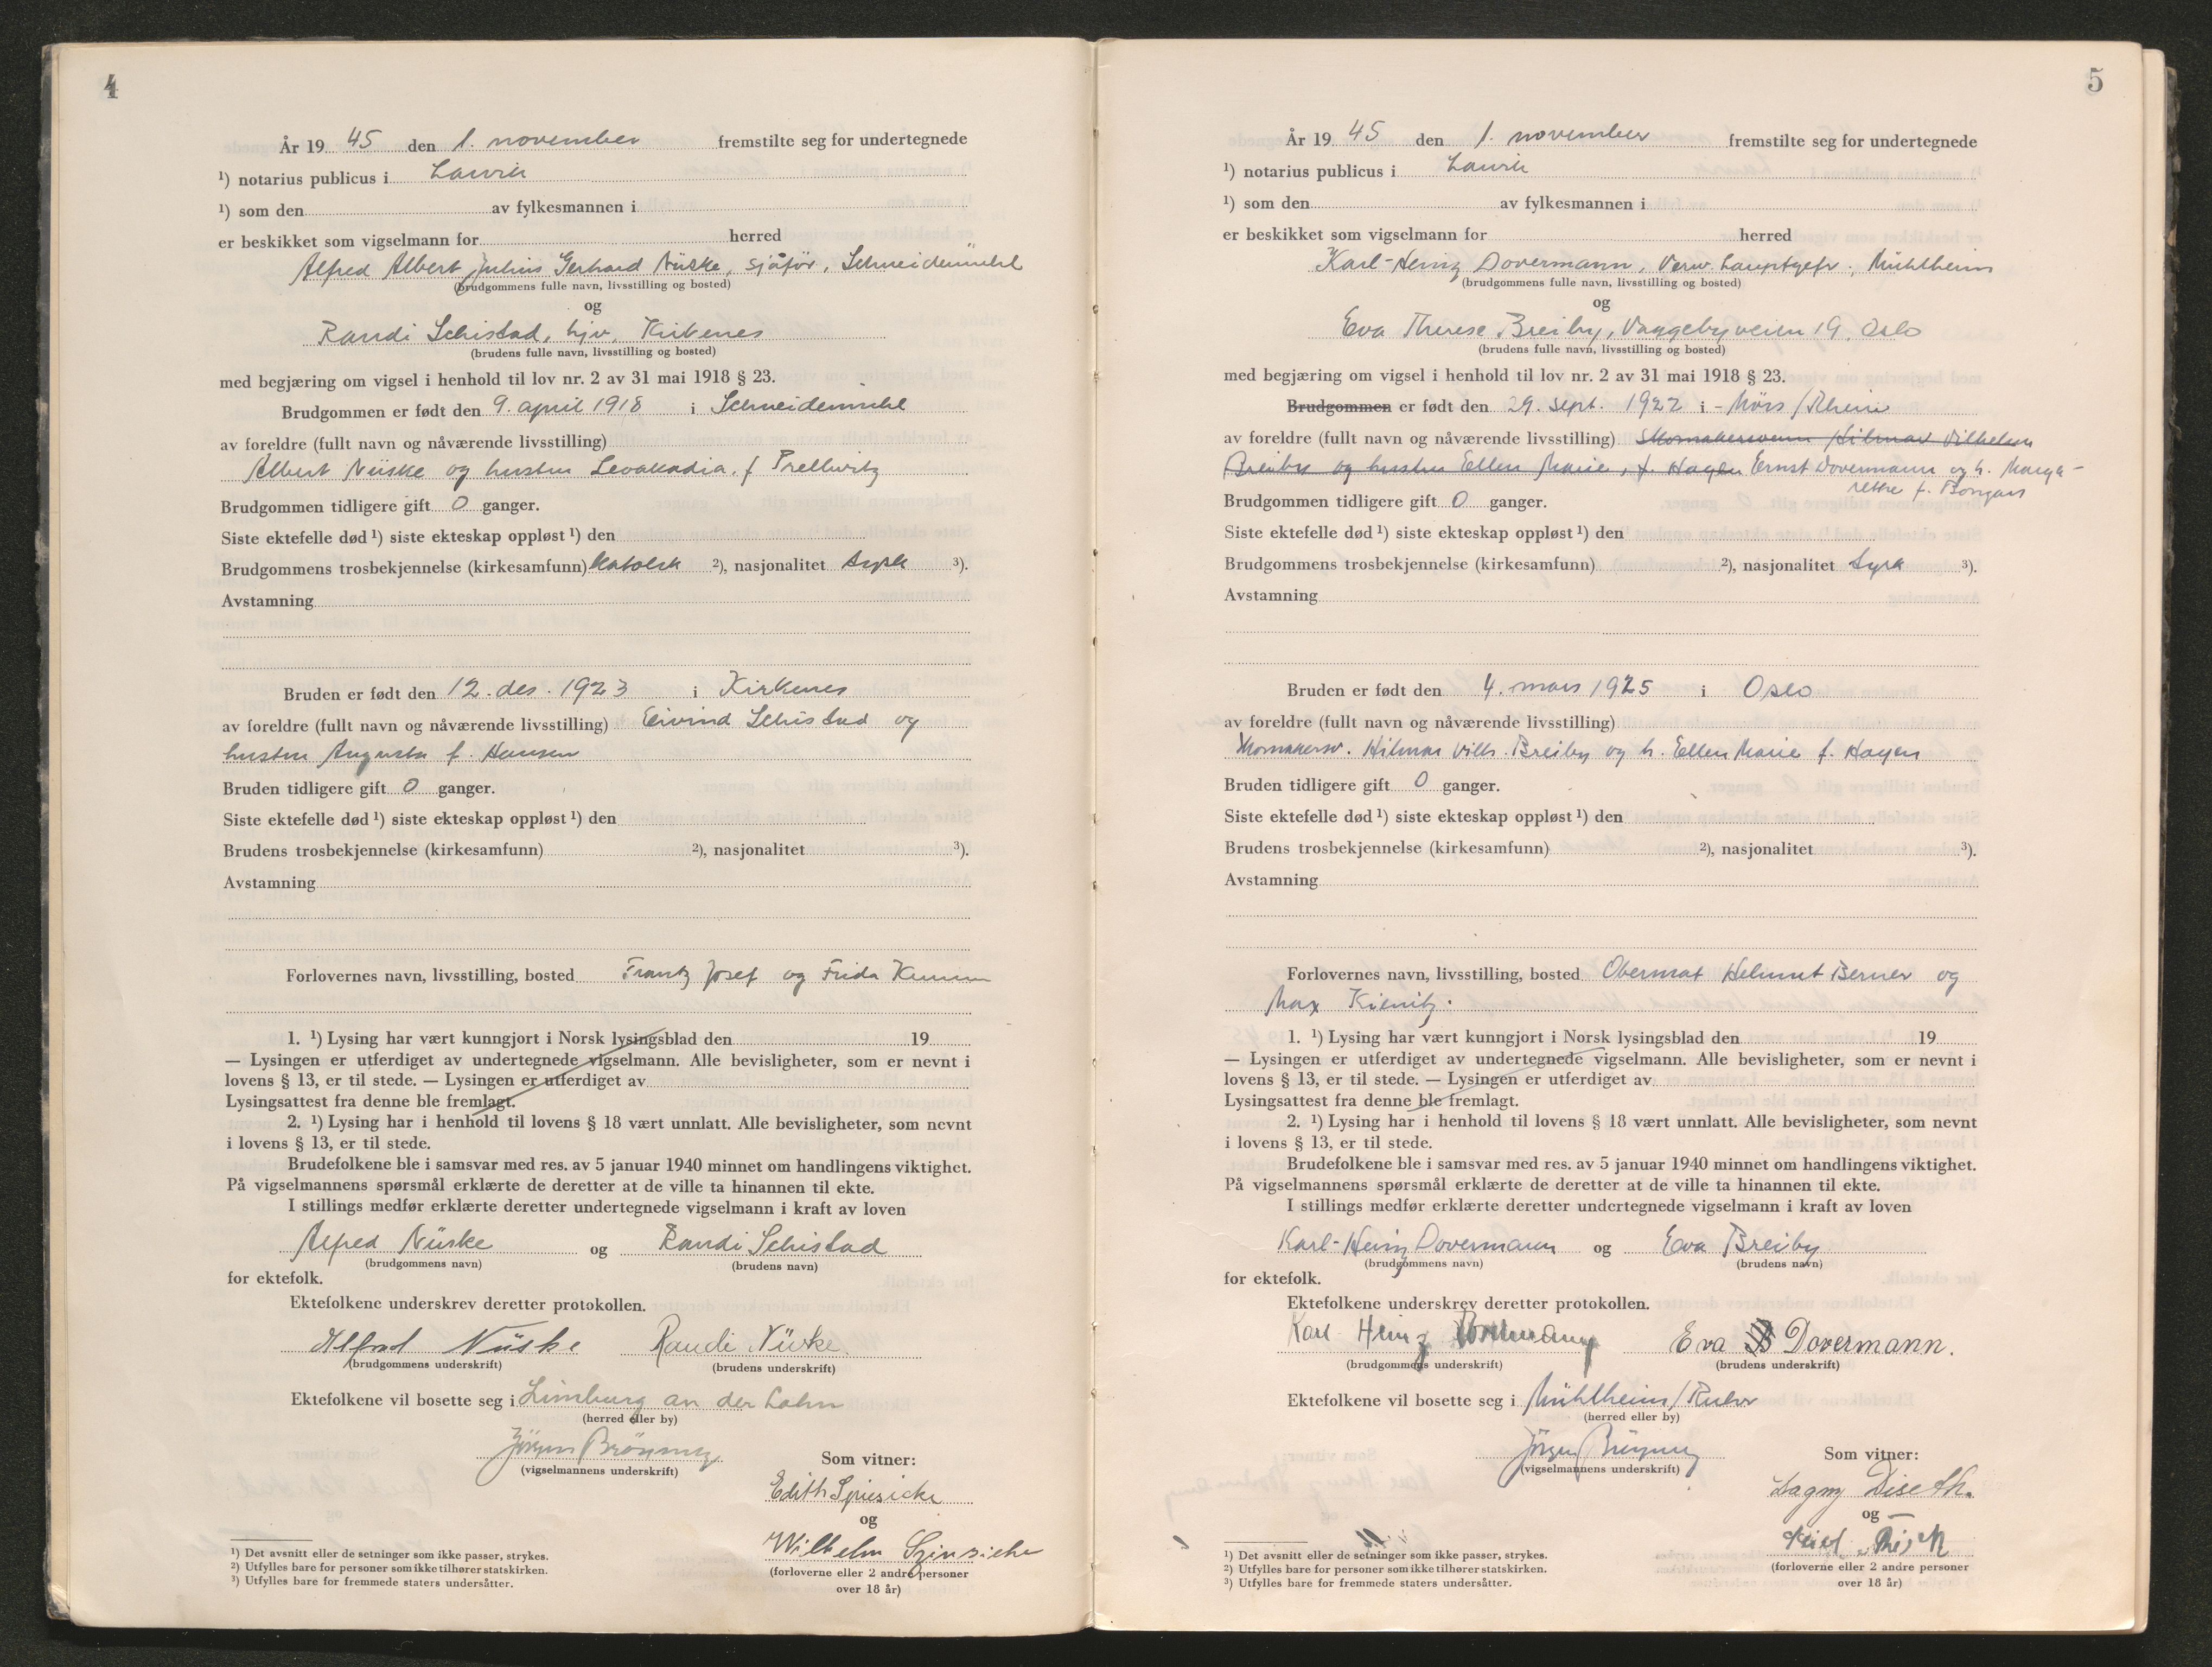 4
År 19 45 den 1. november fremstilte seg for undertegnede
¹) notarius publicus i Larvik
¹) som den av fylkesmannen i
er beskikket som vigselmann for herred
Alfred Albert Julius Gerhard Nüske, sjåför, Schneidemühl
(brudgommens fulle navn, livsstilling og bosted)
og
Randi Schistad, hjv. Kirkenes
(brudens fulle navn, livsstilling og bosted)
med begjæring om vigsel i henhold til lov nr. 2 av 31 mai 1918 § 23.
Brudgommen er født den 9. april 1918 i Schneidemühl
av foreldre (fullt navn og nåværende livsstilling)
Albert Nüske og hustru Levakadia. f Prellwitz
Brudgommen tidligere gift 0 ganger.
Siste ektefelle død ¹) siste ekteskap oppløst ¹) den
Brudgommens trosbekjennelse (kirkesamfunn) katolsk ²), nasjonalitet tysk ³).
Avstamning
Bruden er født den 12. des. 1923 i Kirkenes
av foreldre (fullt navn og nåværende livsstilling) Eivind Schistad og
hustru Augusta f. Hansen
Bruden tidligere gift 0 ganger.
Siste ektefelle død ¹) siste ekteskap oppløst ¹) den
Brudens trosbekjennelse (kirkesamfunn) ²), nasjonalitet ³).
Avstamning
Forlovernes navn, livsstilling, bosted Frantz Josef og Frida
1. ¹) Lysing har vært kunngjort i Norsk lysingsblad den 19
— Lysingen er utferdiget av undertegnede vigselmann. Alle bevisligheter, som er nevnt i
lovens § 13, er til stede. — Lysingen er utferdiget av
Lysingsattest fra denne ble fremlagt.
2. ¹) Lysing har i henhold til lovens § 18 vært unnlatt. Alle bevisligheter, som nevnt
i lovens § 13, er til stede.
Brudefolkene ble i samsvar med res. av 5 januar 1940 minnet om handlingens viktighet.
På vigselmannens spørsmål erklærte de deretter at de ville ta hinannen til ekte.
I stillings medfør erklærte deretter undertegnede vigselmann i kraft av loven
Alfred Nüske og Randi Schistad
(brudgommens navn) (brudens navn)
for ektefolk.
Ektefolkene underskrev deretter protokollen.
Alfred Nüske Randi Nüske.
(brudgommens underskrift) (brudens underskrift)
Ektefolkene vil bosette seg i Limburg an der Lahn
(herred eller by)
Jörgen
(vigselmannens underskrift)
Som vitner:
Edith
og
Wilhelm
(forloverne eller 2 andre personer
over 18 år)
¹) Det avsnitt eller de setninger som ikke passer, strykes.
²) Utfylles bare for personer som ikke tilhører statskirken.
³) Utfylles bare for fremmede staters undersåtter.
5
År 19 45 den 1. november fremstilte seg for undertegnede
¹) notarius publicus i Larvik
¹) som den av fylkesmannen i
er beskikket som vigselmann for herred
Karl-Heinz Dovermann, Verw. Hauptgefr., Mühlheim
(brudgommens fulle navn, livsstilling og bosted)
og
Eva Therese Breiby, Vaggebyveien 19, Oslo
(brudens fulle navn, livsstilling og bosted)
med begjæring om vigsel i henhold til lov nr. 2 av 31 mai 1918 § 23.
Brudgommen er født den 29. sept. 1922 i - Mörs/Rhein
av foreldre (fullt navn og nåværende livsstilling) Skomakersvenn Hilmar Vilhelm
Breiby og hustru Ellen Marie, f. Hagen Ernst Dovermann og h. Marga-
rethe f. Bongars
Brudgommen tidligere gift 0 ganger.
Siste ektefelle død ¹) siste ekteskap oppløst ¹) den
Brudgommens trosbekjennelse (kirkesamfunn) ²), nasjonalitet tysk ³).
Avstamning
Bruden er født den 4. mars 1925 i Oslo
av foreldre (fullt navn og nåværende livsstilling)
Skomakersv. Hilmar Vilh. Breiby og h. Ellen Marie f. Hagen
Bruden tidligere gift 0 ganger.
Siste ektefelle død ¹) siste ekteskap oppløst ¹) den
Brudens trosbekjennelse (kirkesamfunn) ²), nasjonalitet ³).
Avstamning
Forlovernes navn, livsstilling, bosted Obermat Helmut Berner og
Max Kienitz.
1. ¹) Lysing har vært kunngjort i Norsk lysingsblad den 19
— Lysingen er utferdiget av undertegnede vigselmann. Alle bevisligheter, som er nevnt i
lovens § 13, er til stede. — Lysingen er utferdiget av
Lysingsattest fra denne ble fremlagt.
2. ¹) Lysing har i henhold til lovens § 18 vært unnlatt. Alle bevisligheter, som nevnt
i lovens § 13, er til stede.
Brudefolkene ble i samsvar med res. av 5 januar 1940 minnet om handlingens viktighet.
På vigselmannens spørsmål erklærte de deretter at de ville ta hinannen til ekte.
I stillings medfør erklærte deretter undertegnede vigselmann i kraft av loven
Karl-Heinz Dovermann og Eva Breiby
(brudgommens navn) (brudens navn)
for ektefolk.
Ektefolkene underskrev deretter protokollen.
Karl Heinz Dovermann Eva Dovermann.
(brudgommens underskrift) (brudens underskrift)
Ektefolkene vil bosette seg i Mühlheim/Ruhr
(herred eller by)
Jörgen
(vigselmannens underskrift)
Som vitner:
Dagny Diseth.
og
(forloverne eller 2 andre personer
over 18 år)
¹) Det avsnitt eller de setninger som ikke passer, strykes.
²) Utfylles bare for personer som ikke tilhører statskirken.
³) Utfylles bare for fremmede staters undersåtter.